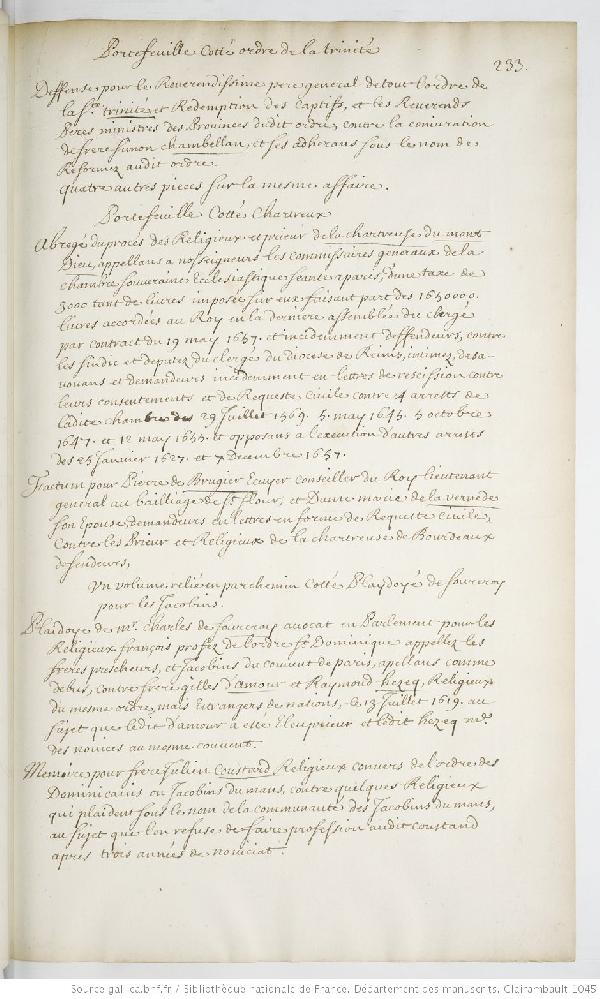 Portefeuille Cotté ordre de la trinité
233.
Deffense pour le Reverendissime pere general de tout l'ordre de
la ste. trinité et Redemption des Captifs, et les Reverends
Peres ministres des Provinces dudit ordre, contre la coniuration
de frere simon chambellan, et ses adherans sous le nom de
Reformez audit ordre.
quatre autres pieces sur la mesme affaire.
Portefeuille Cotté Chartreux
Abregé du procés des Religieux et prieur de la chartreuse du mont
Dieu, appellans a nosseigneurs les commissaires generaux de la
chambre souveraine Ecclesiastique seante a paris, d'une taxe de
3000 tant de livres imposée sur eux faisant part des 1650000.
livres accordées au Roy en la derniere assemblée du clergé
par contract du 19 may 1657. et incidemment deffendeurs, contre
les sindic et deputez du clergé du diocese de Reims, intimez, desa-
uouans et demandeurs incidemment en lettres de rescission contre
leurs consentements et de Requeste Civile contre 4 arrests de
ladite chambre des 29 Juillet 1569. 5. may 1645. 5 octobre
1647. et 12 may 1655. et opposans a l'execution d'autres arrests
des 25 Janvier 1627. et 7 Decembre 1657.
Factum pour Pierre de Brugier Ecuyer Conseiller du Roy lieutenant
general au bailliage de St. flour, et Dame marie de la vernede
son Epouse, demandeurs en lettres en forme de Requeste Civile,
Contre les Prieur et Religieux de la chartreuse de Bourdeaux
defendeurs,
Un volume relié en parchemin Cotté Plaidoyé de fourcroy
pour les Jacobins.
Plaidoyé de mr. Charles de fourcroy avocat en Parlement pour les
Religieux françois profez de l'ordre St. Dominique appellez les
freres prescheurs, et Jacobins du couvent de paris, apellans comme
debus, contre frere gilles d'amour et Raymond hezeq, Religieux
du mesme ordre, mais Estrangers de nations, le 13 Juillet 1619. au
sujet que ledit d'amour a esté Eleu prieur et ledit hezeq mr.
des novices au mesme couvent.
Memoire pour frere Julien Coustard Religieux convers de l'ordre des
Dominicains ou Jacobins du mans, contre quelques Religieux
qui plaident sous le nom de la communauté des Jacobins du mans,
au sujet que l'on refuse de faire profession audit coustard
après trois années de noviciat.
Source gallica.bnf.fr / Bibliothèque nationale de France. Département des manuscrits. Clairambault 1045